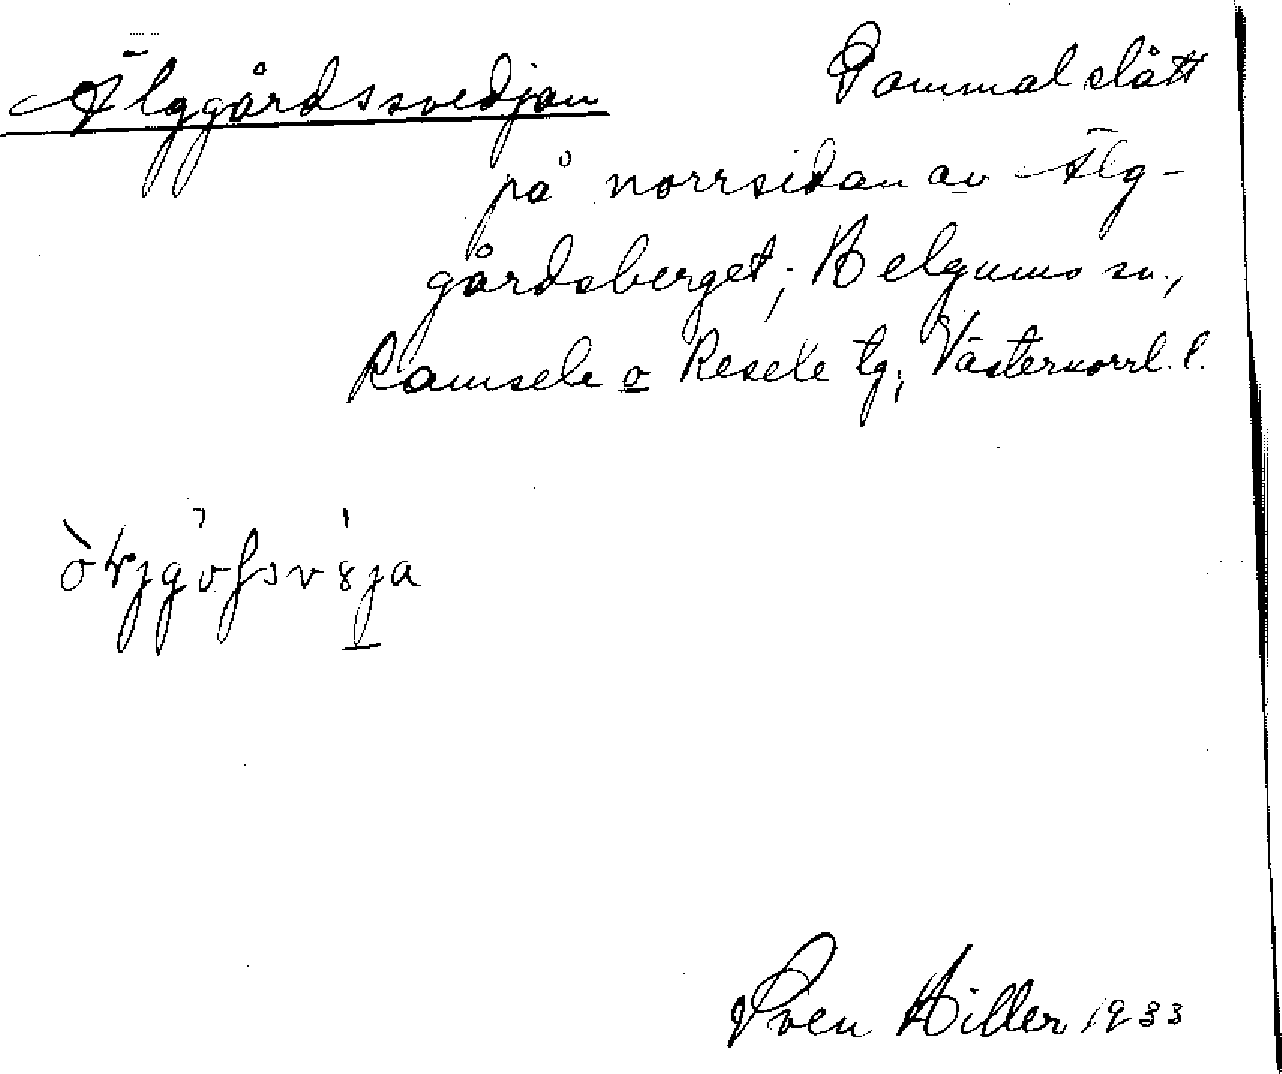 Älggårdssvedjan
Gammal slått
på norrsidan av Älg-
gårdsberget; Helgums sn.,
Ramsele o Resele tg; Västernorrl. l.
Sven Hiller 1933